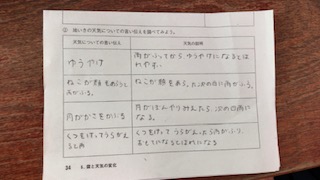 ② 播いきの天気についての言い伝えを調べてみよう。
天気についての言い伝え
天気の説明
ゆうやけ
雨がふってから ゆうやけになるとは
れやすい
ねこが顔をあらうと
雨がふる。
ねこが顔をあらった次の日に雨がふる。
月がかさをかぶる
月がぼんやりみえたら 次の日雨に
なる。
くつをけってうらがえ
ると雨
くつをけって うらがえったら雨がふり、
おもてになるとはれになる
34
5. 雲と天気の変化